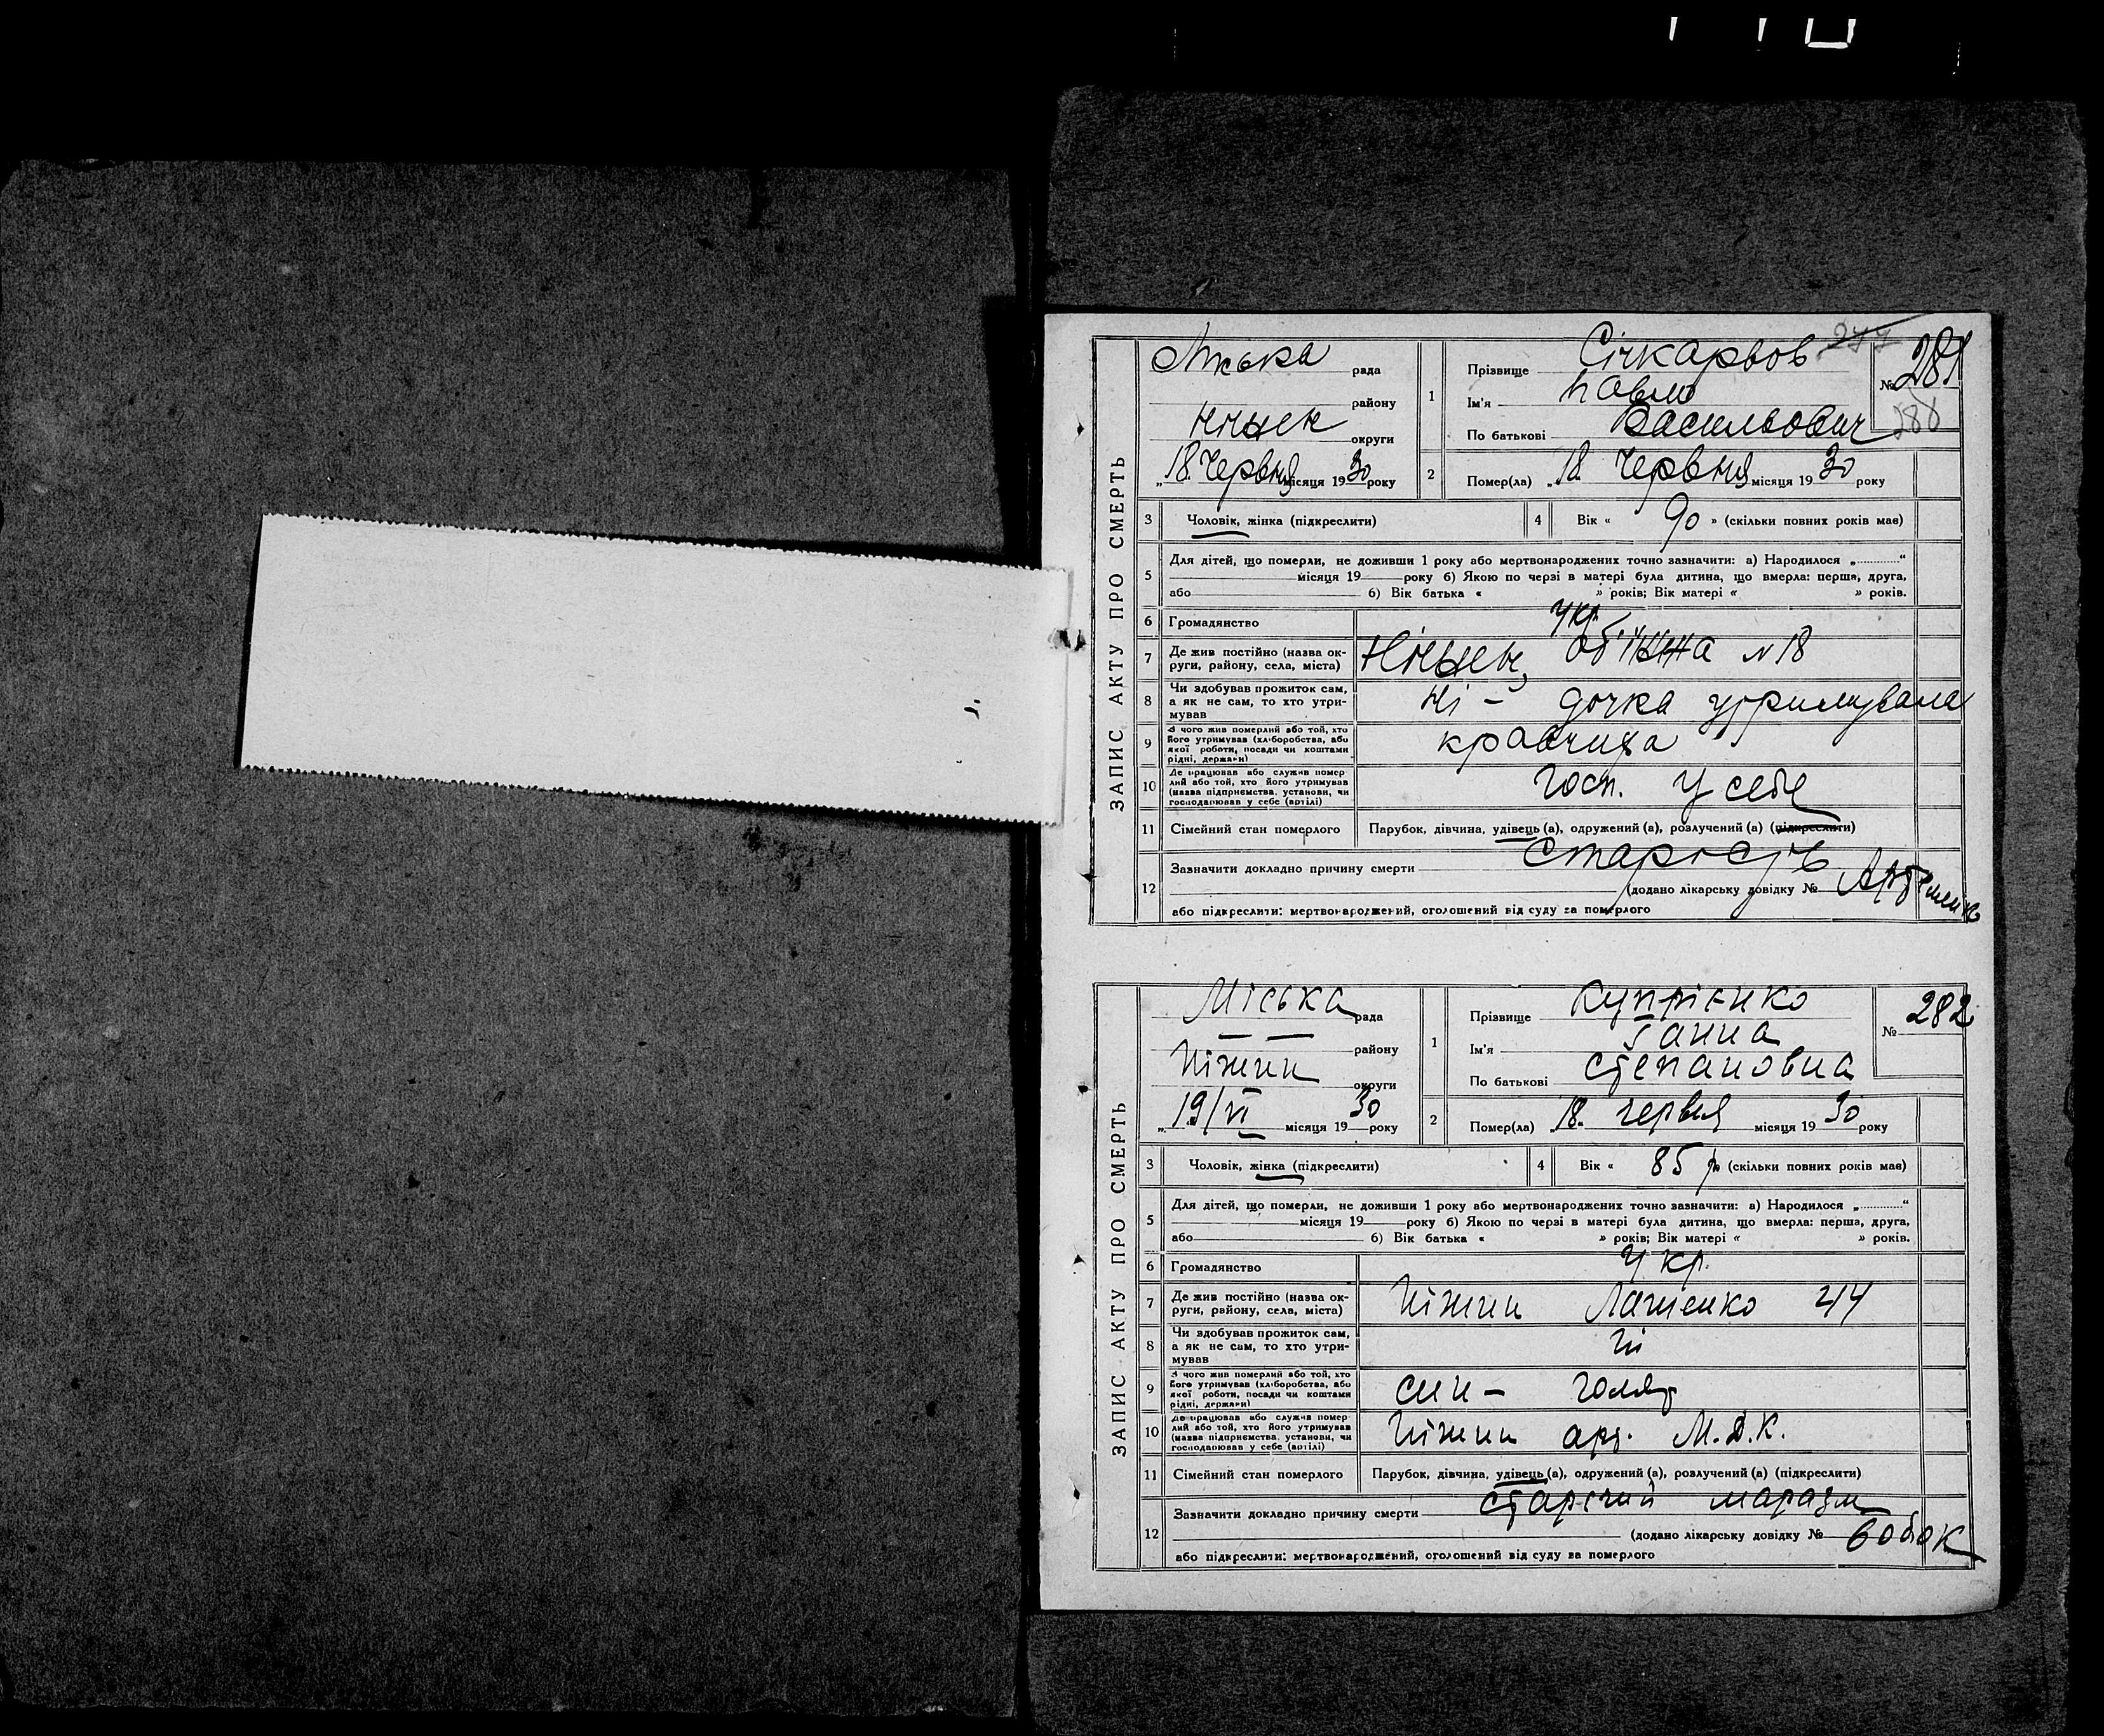 ЗАПИС АКТУ ПРО СМЕРТЬ
Міська рада
району
Ніжен округи
„18 Червня місяця 1930 року
1
Прізвище Січкарьов
Ім'я Павло
По батькові Васильович
277
№ 281
2
Помер(ла) „18 Червня місяця 1930 року
3 Чоловік, жінка (підкреслити)
4 Вік « 90 » (скільки повних років має)
5 Для дітей, що померли, не доживши 1 року або мертвонароджених точно зазначити: а) Народилося „..........“
місяця 19 року б) Якою по черзі в матері була дитина, що вмерла: перша, друга,
або б) Вік батька « » років; Вік матері « » років.
6 Громадянство Укр.
7 Де жив постійно (назва округи, району, села, міста) Ніжен, № 18
8 Чи здобував прожиток сам,
а як не сам, то хто утримував
Ні - дочка утримувала
9 З чого жив померлий або той, хто
його утримував (хліборобства, або
якої роботи, посади чи коштами
рідні, держави)
кравчиха
10 Де працював або служив померлий або той, хто його утримував
(назва підприємства, установи, чи
господарював у себе (артілі)
Госп. у себе
11 Сімейний стан померлого Парубок, дівчина, удівець (а), одружений (а), розлучений (а) (підкреслити)
12 Зазначити докладно причину смерти старість
(додано лікарську довідку №
або підкреслити: мертвонароджений, оголошений від суду за померлого
ЗАПИС АКТУ ПРО СМЕРТЬ
Міська рада
району
Ніжин округи
„19/VI місяця 1930 року
1
Прізвище Купрієнко
Ім'я Ганна
По батькові Степановна
№ 282
2
Помер(ла) „18. червня місяця 1930 року
3 Чоловік, жінка (підкреслити)
4 Вік « 85 р » (скільки повних років має)
5 Для дітей, що померли, не доживши 1 року або мертвонароджених точно зазначити: а) Народилося „..........“
місяця 19 року б) Якою по черзі в матері була дитина, що вмерла: перша, друга,
або б) Вік батька « » років; Вік матері « » років.
6 Громадянство Укр.
7 Де жив постійно (назва округи, району, села, міста) Ніжин
8 Чи здобував прожиток сам,
а як не сам, то хто утримував
Ні
9 З чого жив померлий або той, хто
його утримував (хліборобства, або
якої роботи, посади чи коштами
рідні, держави)
син - голяр
10 Де працював або служив померлий або той, хто його утримував
(назва підприємства, установи, чи
господарював у себе (артілі)
Ніжин арт. М.Д.К.
11 Сімейний стан померлого Парубок, дівчина, удівець (а), одружений (а), розлучений (а) (підкреслити)
12 Зазначити докладно причину смерти старечий маразм
(додано лікарську довідку № Бобок
або підкреслити: мертвонароджений, оголошений від суду за померлого